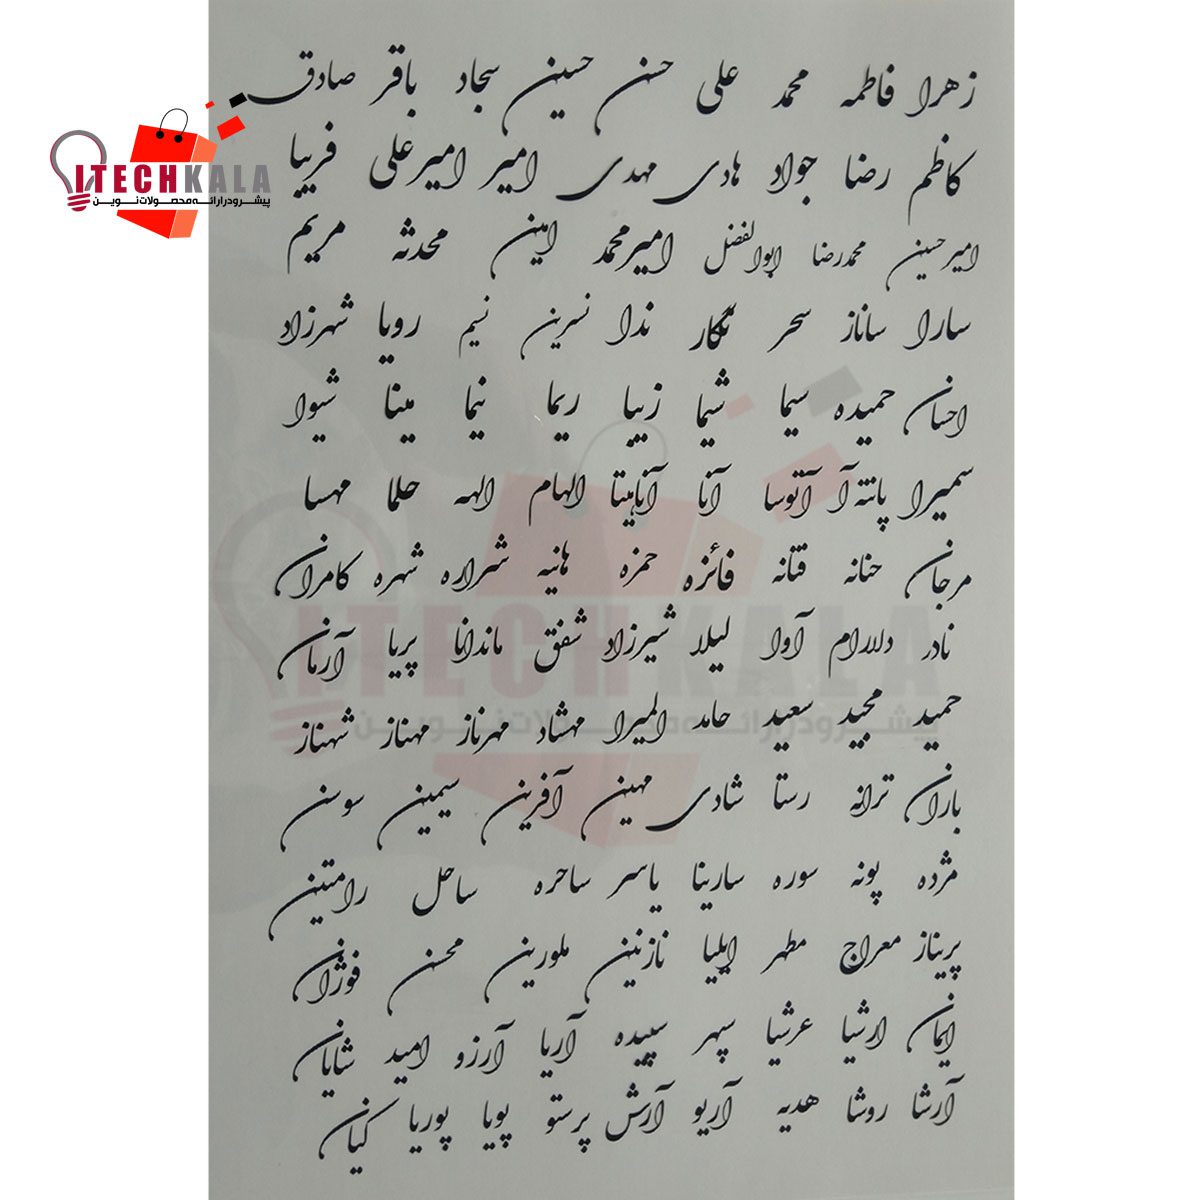 ITECHKALA
پیشرو در ارائه محصولات نوین
زهرا فاطمه محمد علی حسن حسین سجاد باقر صادق
کاظم رضا جواد هادی مهدی امیر امیرعلی فریبا
امیرحسین محمدرضا ابوالفضل امیرمحمد امین محدثه مریم
سارا ساناز سحر نگار ندا نسرین نسیم رویا شهرزاد
احسان حمیده سیما شیما زیبا ریما نیما مینا شیوا
سمیرا پانته آ آتوسا آنا آناهیتا الهام الهه حلما مهسا
مرجان حنانه فتانه فائزه حمزه هانیه شراره شهره کامران
نادر دلارام آوا لیلا شیرزاد شفق ماندانا پریا آرمان
حمید مجید سعید حامد المیرا مهشاد مهرناز مهناز شهناز
باران ترانه رستا شادی مهین آفرین سیمین سوسن
مژده پونه سوره سارینا یاسر ساحره ساحل رامتین
پریناز معراج مطهر ایلیا نازنین ملورین محسن فوژان
ایمان ارشیا عرشیا سپهر سپیده آریا آرزو امید شایان
آرشا روشا هدیه آریو آرش پرستو پویا پوریا کیان